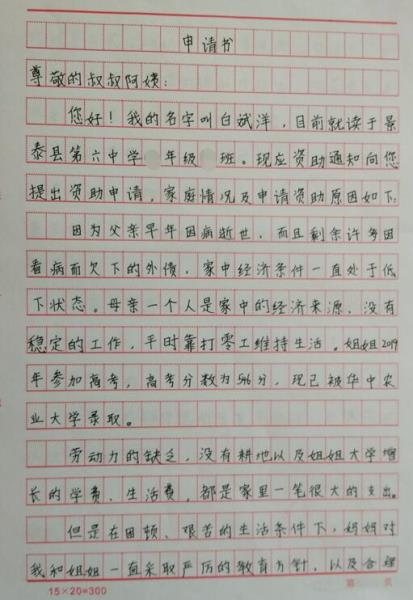 申请书
尊敬的叔叔阿姨:
您好!我的名字叫白斌洋,目前就读于景
泰县第六中学 年级 班。现应资助通知向您
提出资助申请,家庭情况及申请资助原因如下:
因为父亲早年因病逝世,而且剩余许多因
看病而欠下的外债,家中经济条件一直处于低
下状态。母亲一个人是家中的经济来源,没有
稳定的工作,平时靠打零工维持生活。姐姐2019
年参加高考,高考分数为546分,现已被华中农
业大学录取。
劳动力的缺乏,没有耕地以及姐姐大学增
长的学费、生活费,都是家里一笔很大的支出。
但是在困顿、艰苦的生活条件下,妈妈对
我和姐姐一直采取严厉的教育方针,以及合理
15×20=300
第 页